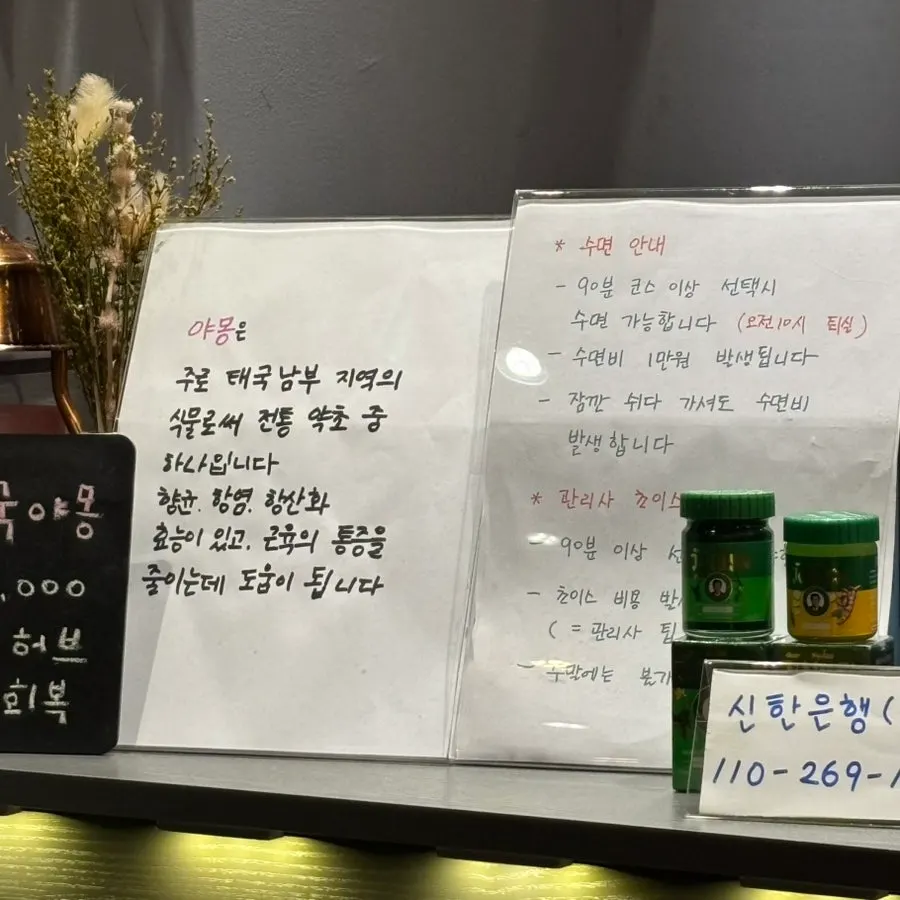 야몽
,000
허브
회복
야몽은
주로 태국남부 지역의
식물로써 전통 약초 중
하나입니다
향균. 항염. 항산화
효능이 있고. 근육의 통증을
줄이는데 도움이 됩니다
* 수면 안내
- 90분 코스 이상 선택시
수면 가능합니다 (오전10시 퇴실)
- 수면비 1만원 발생됩니다
- 잠깐 쉬다 가셔도 수면비
발생합니다
* 관리사 초이스
- 90분 이상
- 초이스 비용
( = 관리사 팁
- 주말에는 불가
신한은행 (
110-269-